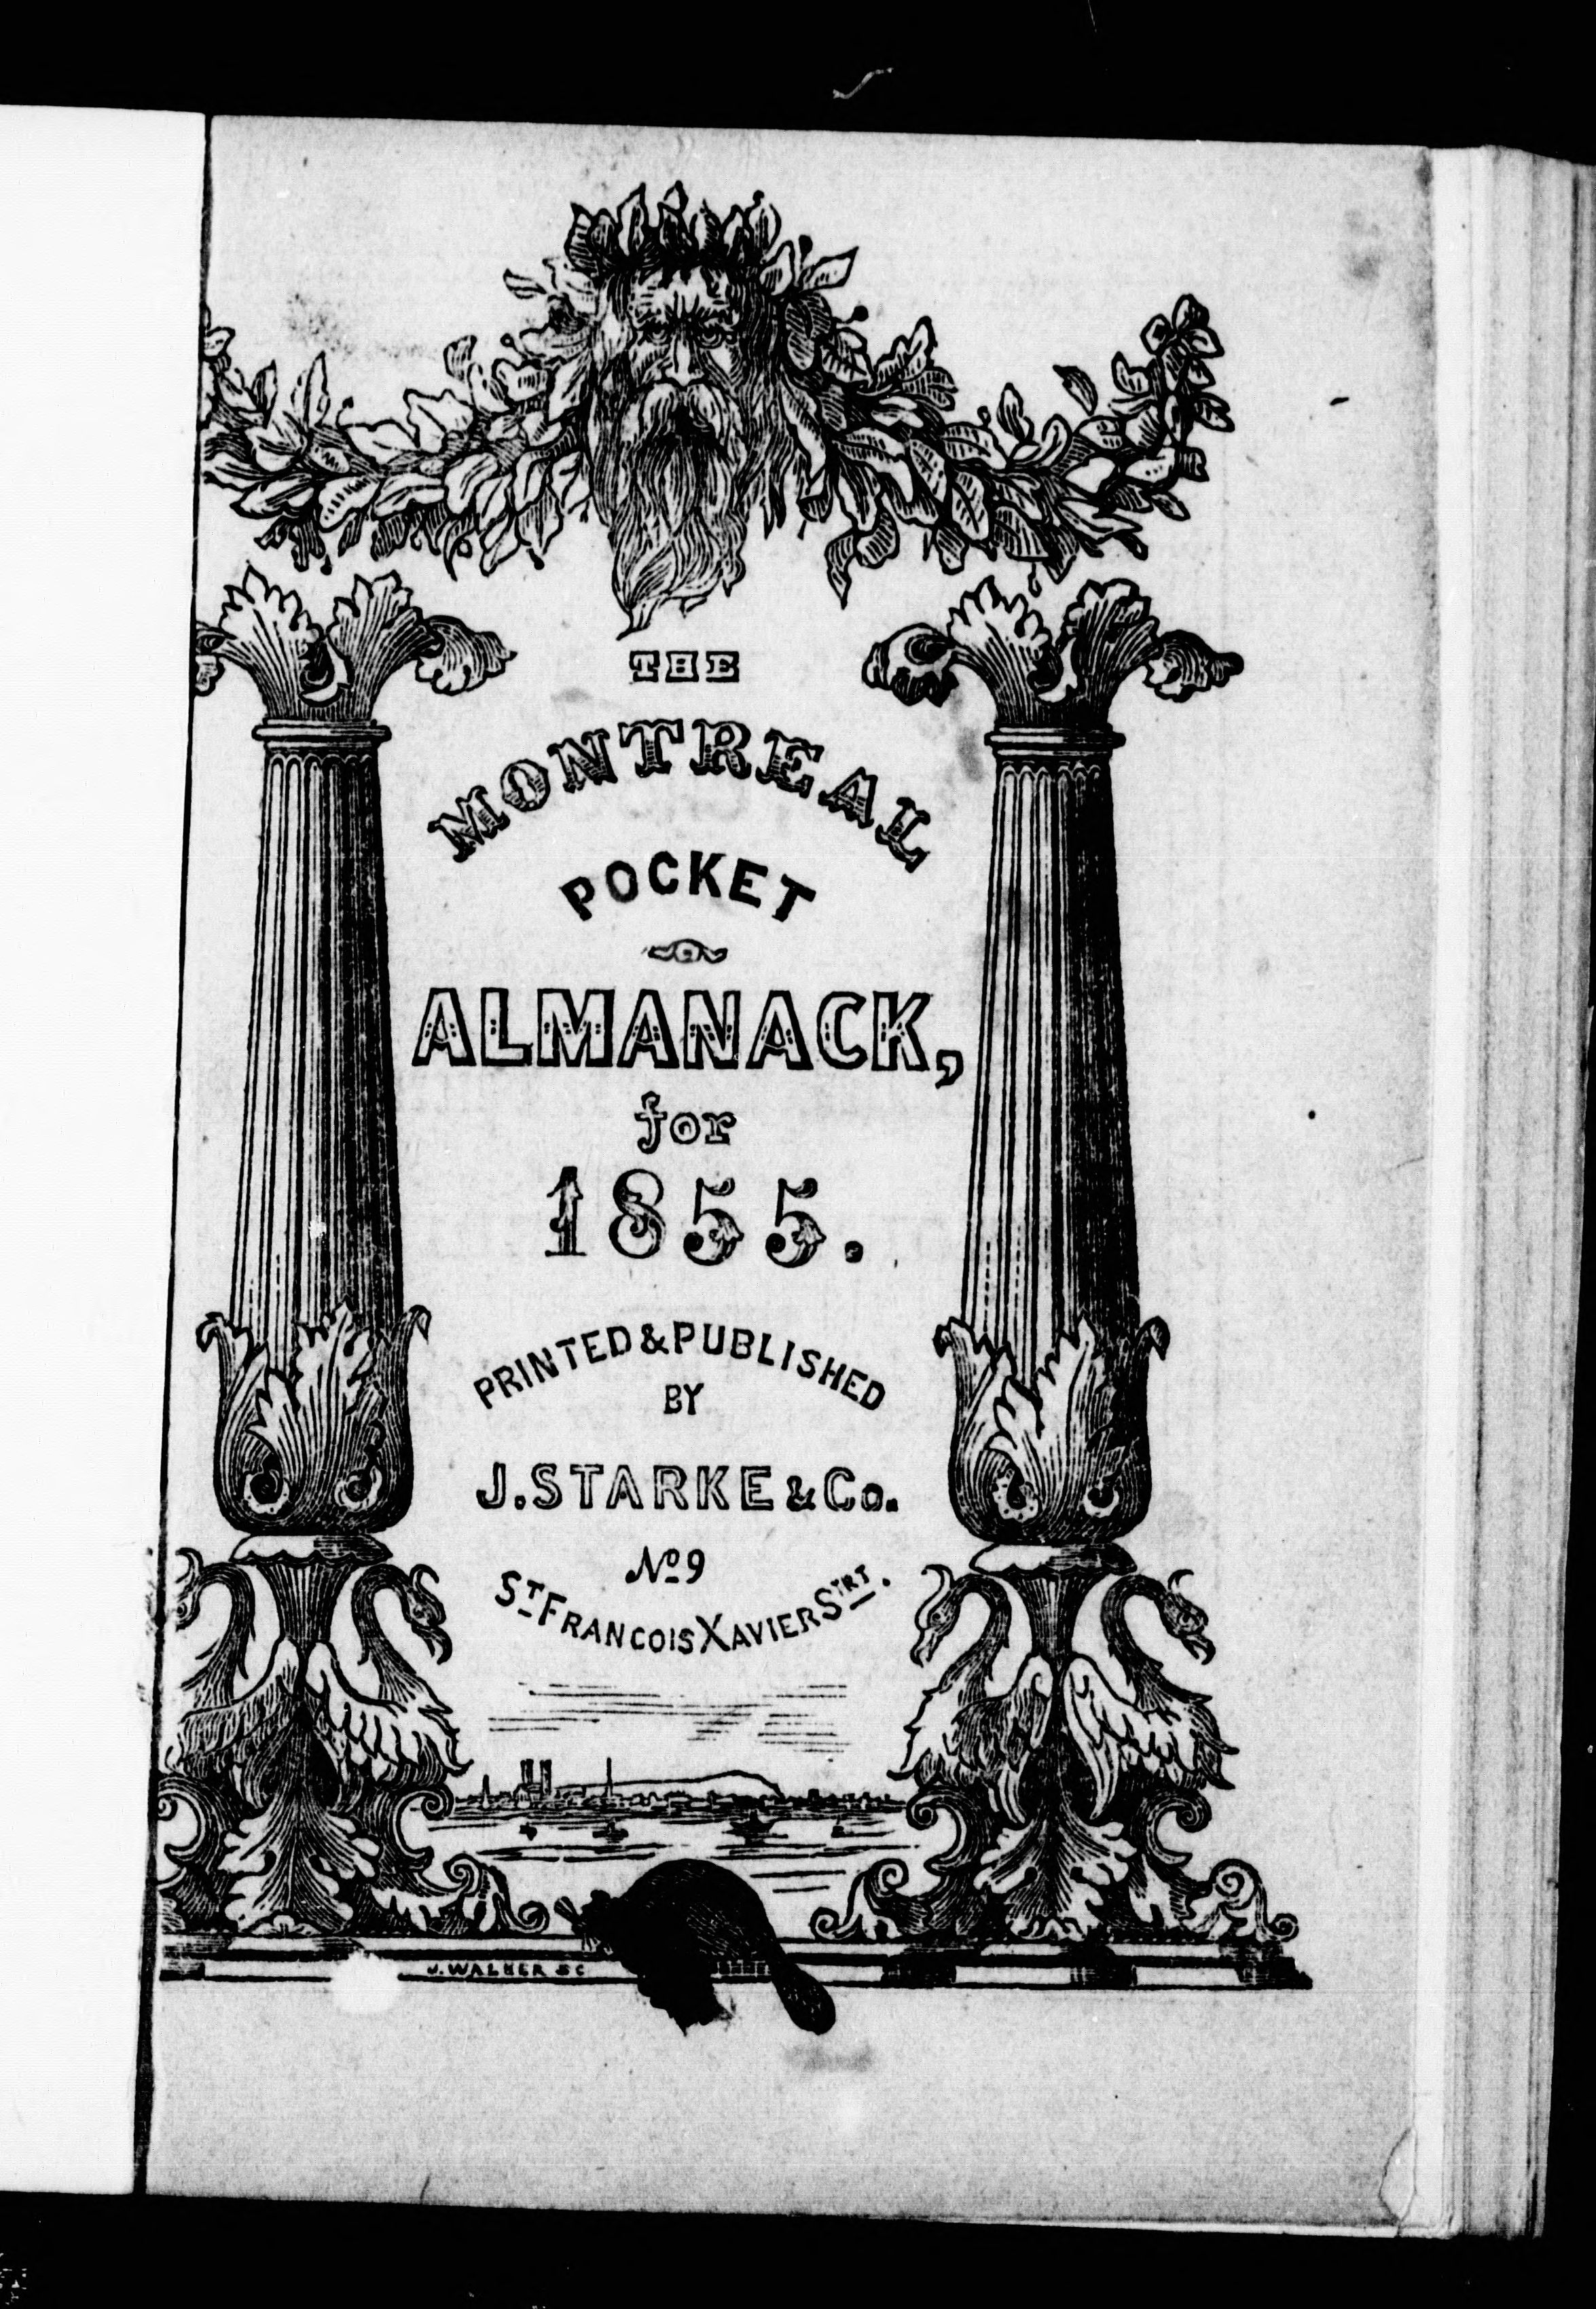 THE
MONTREAL
POCKET
ALMANACK,
for
1855.
PRINTED & PUBLISHED
BY
J. STARKE & Co.
No 9
ST FRANCOIS XAVIER STRT.
J. WALKER SC